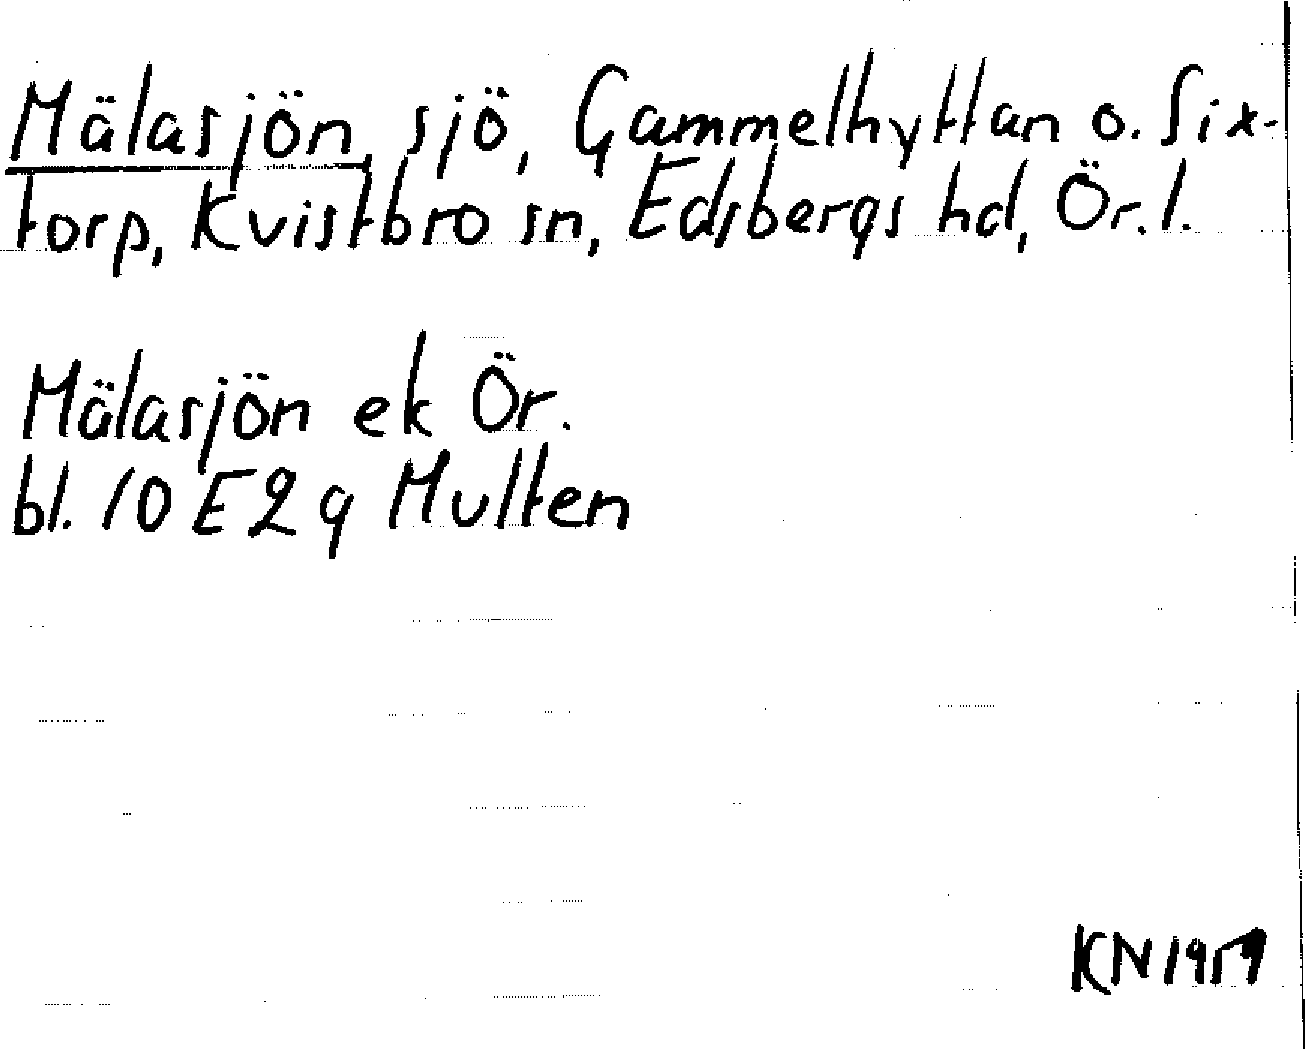 Mälasjön, sjö, Gammelhyttan o. Six-
torp, Kvistbro sn, Edsbergs hd, Ör. l.
Mälasjön ek Ör.
bl. 10 E 2 g Multen
KN